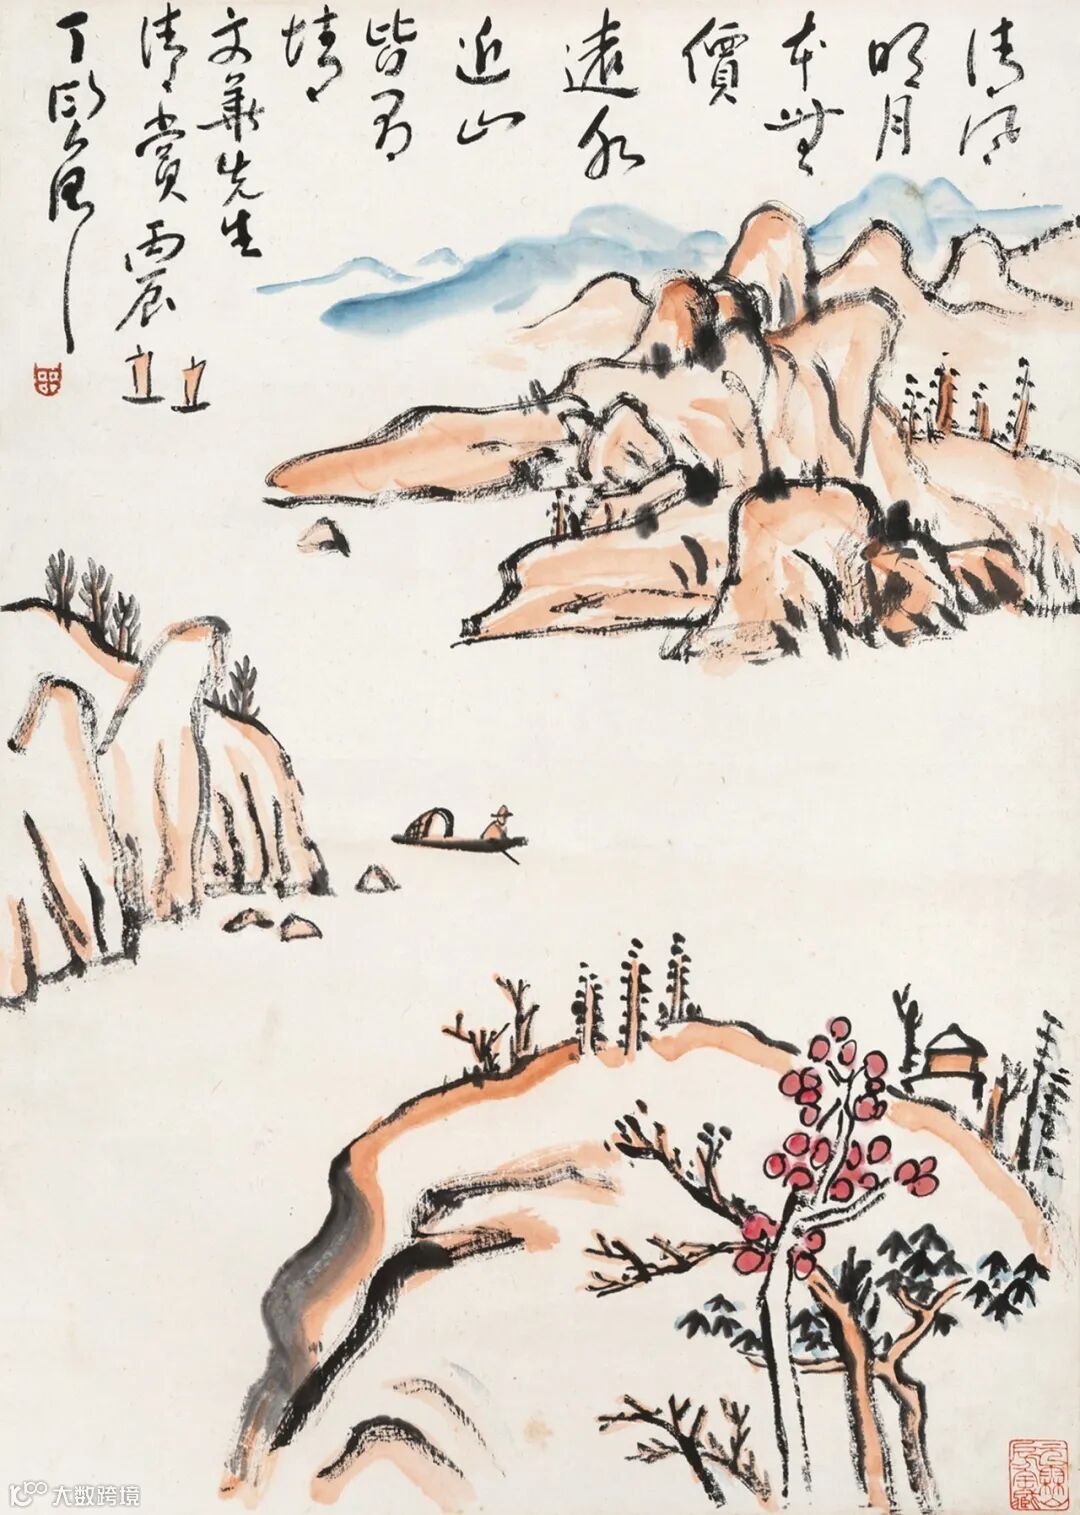 清風
明月
本無
價
遠水
近山
皆有
情
文華先生
清賞丙辰
丁衍庸
大数跨境